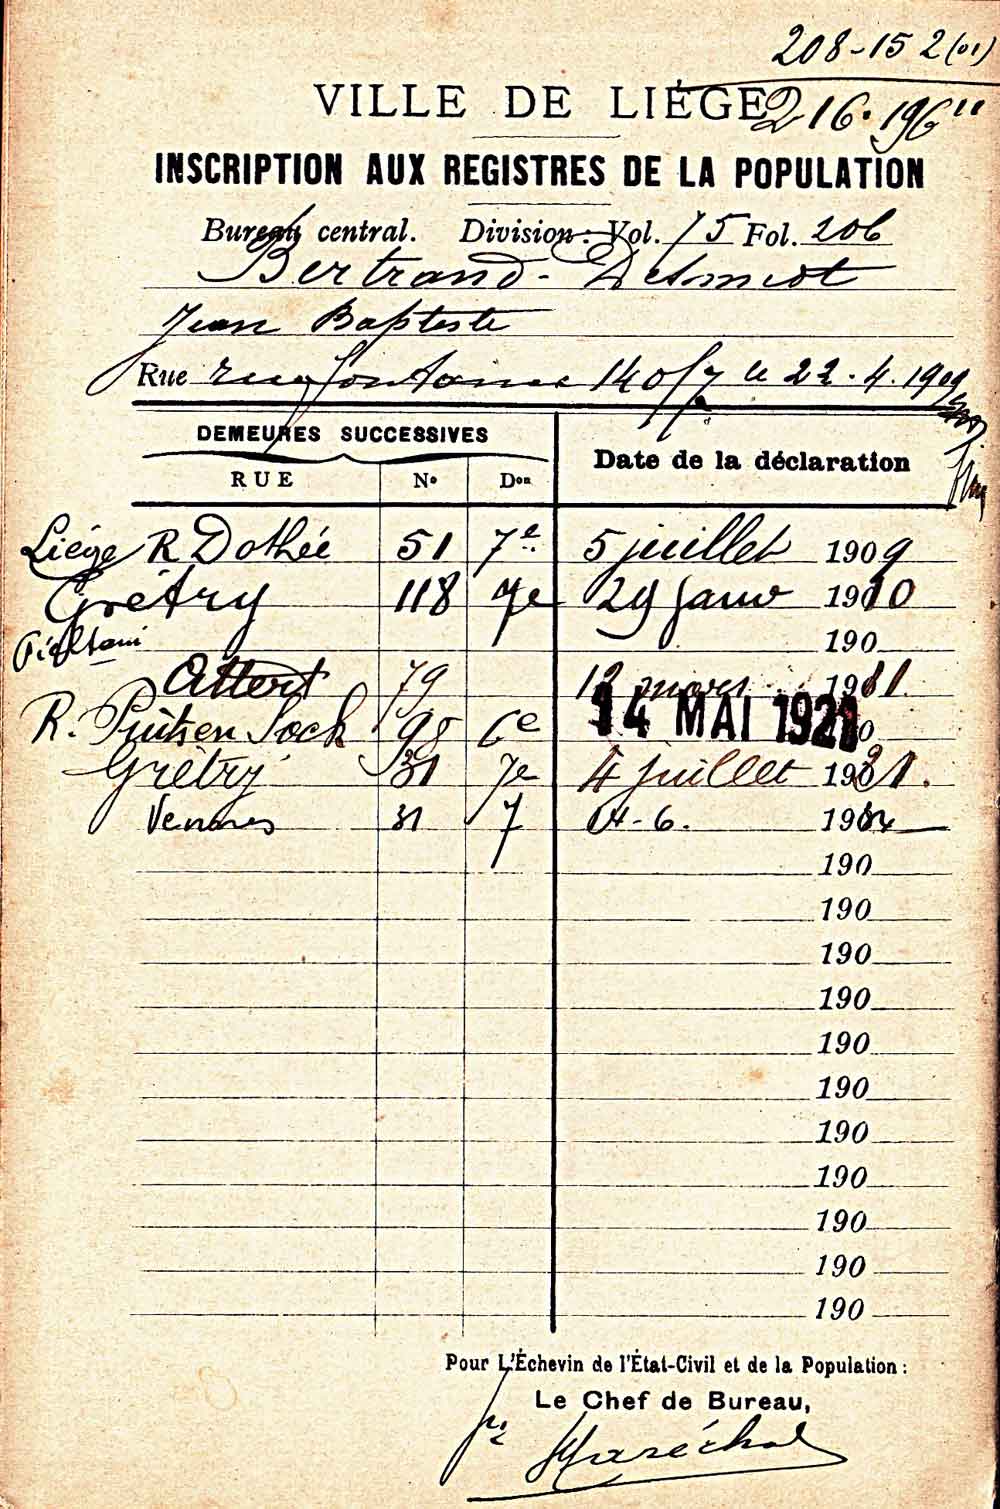 208-15 2(01)
VILLE DE LIÉGE
216. 196
INSCRIPTION AUX REGISTRES DE LA POPULATION
Bureau central. Division: Vol. 75 Fol. 206
Bertrand - Desmedt
Jean Baptiste
Rue rue fontaine 140/7 le 22.4.1909
DEMEURES SUCCESSIVES
Date de la déclaration
RUE Nº Don
Liége R Dothée 51 7e 5 juillet 1909
Grétry 118 7e 29 janv 1910
190
Attert 79 12 mars 1911
R. 98 6e 14 MAI 1921
Grétry 31 7e 4 juillet 1921.
Vennes 31 7 14-6. 1934
190
190
190
190
190
190
190
190
190
190
190
Pour L'Échevin de l'État-Civil et de la Population :
Le Chef de Bureau,
Maréchal